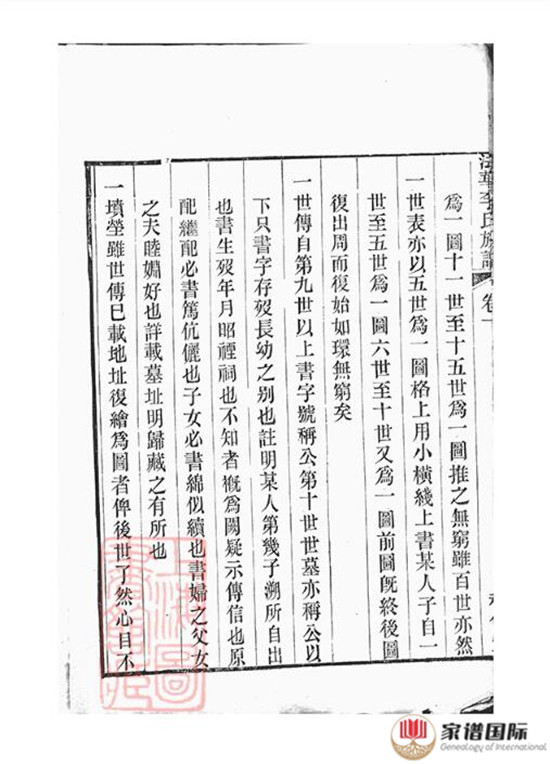 法華李氏族譜 卷一
爲一圖十一世至十五世爲一圖推之無窮雖百世亦然
一世表亦以五世爲一圖格上用小橫綫上書某人子自一
世至五世爲一圖六世至十世又爲一圖前圖旣終後圖
復出周而復始如環無窮矣
一世傳自第九世以上書字號稱公第十世世墓亦稱公以
下只書字存歿長幼之别也註明某人第幾子溯所自出
也書生歿年月昭禋祠也不知者槪爲闕疑示傳信也原
配繼配必書篤伉儷也子女必書綿似續也書婦之父女
之夫睦婣好也詳載墓址明歸藏之有所也
一墳塋雖世傳巳載地址復繪爲圖者俾後世了然心目不
上海圖書館藏
家谱国际
Genealogy of International